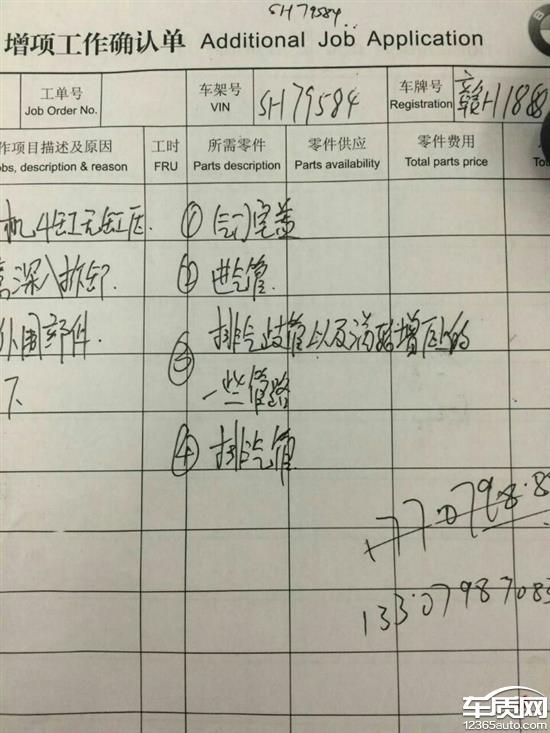 SH79584
增项工作确认单 Additional Job Application
工单号
Job Order No.
车架号
VIN
SH79584
车牌号
Registration
赣H1868
作项目描述及原因
obs, description & reason
工时
FRU
所需零件
Parts description
零件供应
Parts availability
零件费用
Total parts price
机4缸无缸压.
① 气门室盖
深入拆卸.
② 进气管.
外围部件.
③ 排气歧管以及涡轮增压的
下
一些管路
④ 排气管
1330798708
车质网
12365auto.com